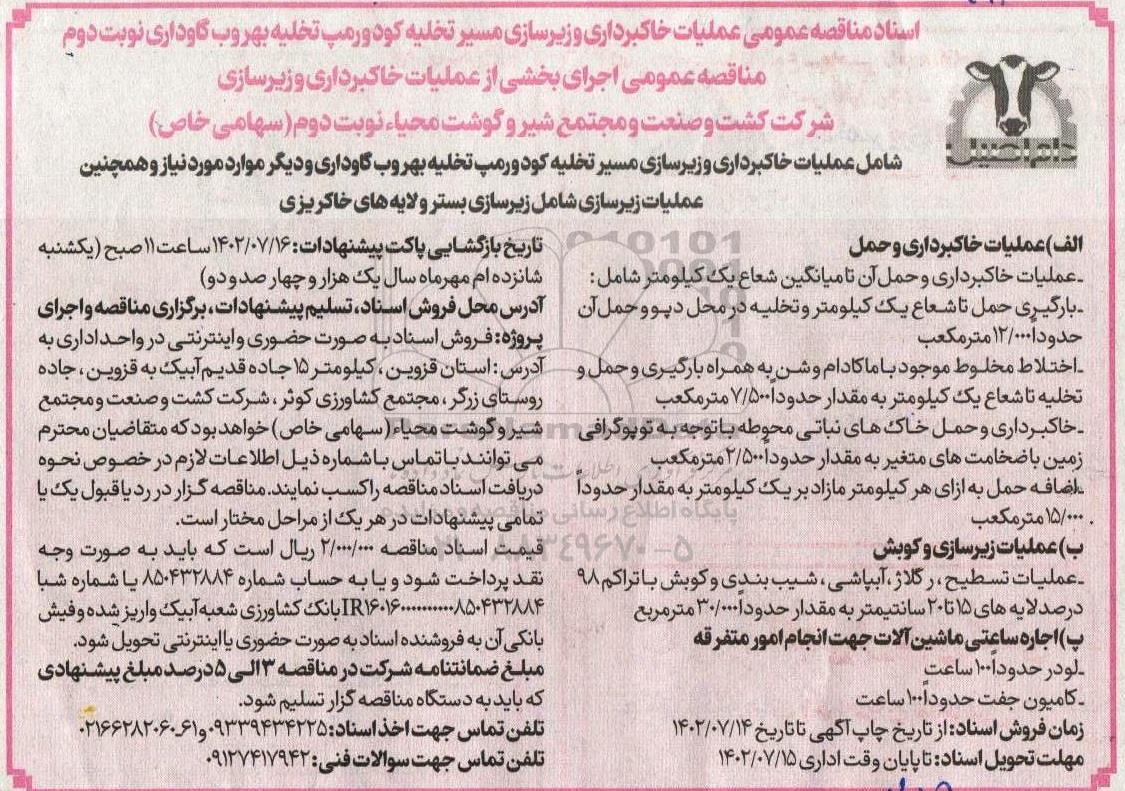 اسناد مناقصه عمومی عملیات خاکبرداری و زیرسازی مسیر تخلیه کود و رمپ تخلیه بهر وب گاوداری نوبت دوم
مناقصه عمومی اجرای بخشی از عملیات خاکبرداری و زیرسازی
شرکت کشت و صنعت و مجتمع شیر و گوشت محیاء نوبت دوم (سهامی خاص)
دام اصیل
شامل عملیات خاکبرداری و زیرسازی مسیر تخلیه کود و رمپ تخلیه بهر وب گاوداری و دیگر موارد مورد نیاز و همچنین
عملیات زیرسازی شامل زیرسازی بستر و لایه های خاکریزی
الف) عملیات خاکبرداری و حمل
ـ عملیات خاکبرداری و حمل آن تا میانگین شعاع یک کیلومتر شامل:
ـ بارگیری حمل تا شعاع یک کیلومتر و تخلیه در محل دپو و حمل آن
حدوداً ۱۲/۰۰۰ مترمکعب
ـ اختلاط مخلوط موجود با ماکادام و شن به همراه بارگیری و حمل و
تخلیه تا شعاع یک کیلومتر به مقدار حدوداً ۷/۵۰۰ مترمکعب
ـ خاکبرداری و حمل خاک های نباتی محوطه با توجه به توپوگرافی
زمین با ضخامت های متغیر به مقدار حدوداً ۲/۵۰۰ مترمکعب
ـ اضافه حمل به ازای هر کیلومتر مازاد بر یک کیلومتر به مقدار حدوداً
۱۵/۰۰۰ مترمکعب
ب) عملیات زیرسازی و کوبش
ـ عملیات تسطیح، رگلاژ، آبپاشی، شیب بندی و کوبش با تراکم ۹۸
درصد لایه های ۱۵ تا ۲۰ سانتیمتر به مقدار حدوداً ۳۰/۰۰۰ مترمربع
پ) اجاره ساعتی ماشین آلات جهت انجام امور متفرقه
ـ لودر حدوداً ۱۰۰ ساعت
ـ کامیون جفت حدوداً ۱۰۰ ساعت
زمان فروش اسناد: از تاریخ چاپ آگهی تا تاریخ ۱۴۰۲/۰۷/۱۴
مهلت تحویل اسناد: تا پایان وقت اداری ۱۴۰۲/۰۷/۱۵
تاریخ بازگشایی پاکت پیشنهادات: ۱۴۰۲/۰۷/۱۶ ساعت ۱۱ صبح (یکشنبه
شانزده ام مهرماه سال یک هزار و چهار صد و دو)
آدرس محل فروش اسناد، تسلیم پیشنهادات، برگزاری مناقصه و اجرای
پروژه: فروش اسناد به صورت حضوری و اینترنتی در واحد اداری به
آدرس: استان قزوین، کیلومتر ۱۵ جاده قدیم آبیک به قزوین، جاده
روستای زرگر، مجتمع کشاورزی کوثر، شرکت کشت و صنعت و مجتمع
شیر و گوشت محیاء (سهامی خاص) خواهد بود که متقاضیان محترم
می توانند با تماس با شماره ذیل اطلاعات لازم در خصوص نحوه
دریافت اسناد مناقصه را کسب نمایند. مناقصه گزار در رد یا قبول یک یا
تمامی پیشنهادات در هر یک از مراحل مختار است.
قیمت اسناد مناقصه ۲/۰۰۰/۰۰۰ ریال است که باید به صورت وجه
نقد پرداخت شود و یا به حساب شماره ۸۵۰۴۳۲۸۸۴ یا شماره شبا
بانک کشاورزی شعبه آبیک واریز شده و فیش
بانکی آن به فروشنده اسناد به صورت حضوری یا اینترنتی تحویل شود.
مبلغ ضمانتنامه شرکت در مناقصه ۳ الی ۵ درصد مبلغ پیشنهادی
که باید به دستگاه مناقصه گزار تسلیم شود.
تلفن تماس جهت اخذ اسناد: ۰۹۳۳۹۴۳۴۲۲۵ و ۶۱-۰۲۱۶۶۲۸۲۰۶۰
تلفن تماس جهت سوالات فنی: ۰۹۱۲۷۴۱۷۹۴۲
پایگاه اطلاع رسانی مناقصه و مزایده
۰۲۱-۸۸۳۴۹۶۷۰-۵